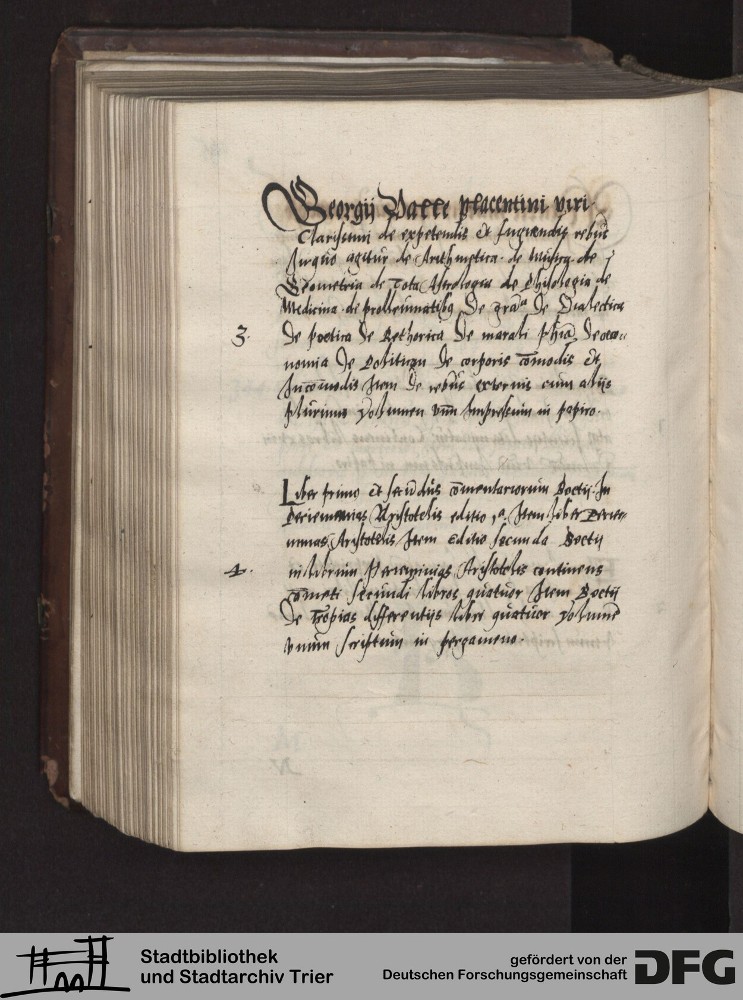 Georgij Valle placentini viri
Clarissimi de expetendis et fugiendis rebus
Inquo agitur de Arithmetica de Musica de
Geometria de tota Astrologia de Philologia de
Medicina de problematibus De gram De Dialectica
3. De poetica De Rethorica De morali phia De oeco
nomia De Politium De corporis comodis et
Incomodis Item De rebus externis cum alijs
plurimis volumen vnum Impressum in papiro.
Liber primo et secundus comentariorum Boetij In
Aristotelis editio 1a Item liber
Aristotelis Item editio secunda Boetij
4. in librum Aristotelis continens
secundi libros quatuor Item Boetij
De differentijs liber quatuor volume
vnum scriptum in pergameno.
Stadtbibliothek
und Stadtarchiv Trier
gefördert von der
Deutschen Forschungsgemeinschaft
DFG